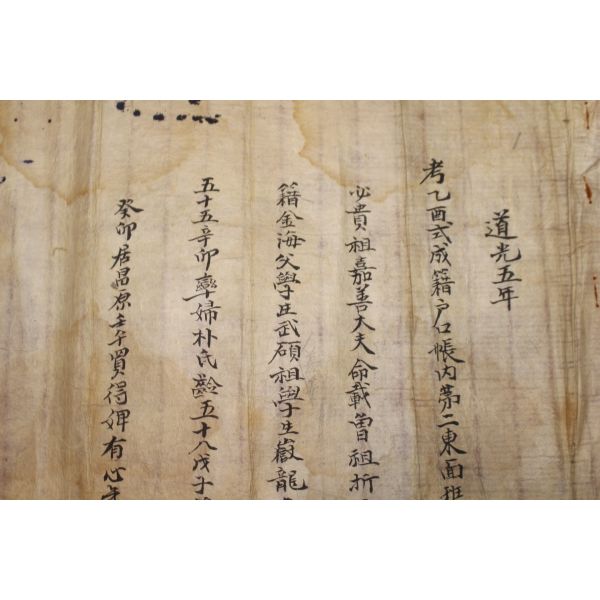 道光五年
考乙酉式成籍戶口帳內第二東面班
必貴祖嘉善大夫命載曾祖折
籍金海父學生武碩祖學生嶽龍
五十五辛卯率婦朴氏齡五十八戊子
癸卯居昌原壬午買得婢有心年